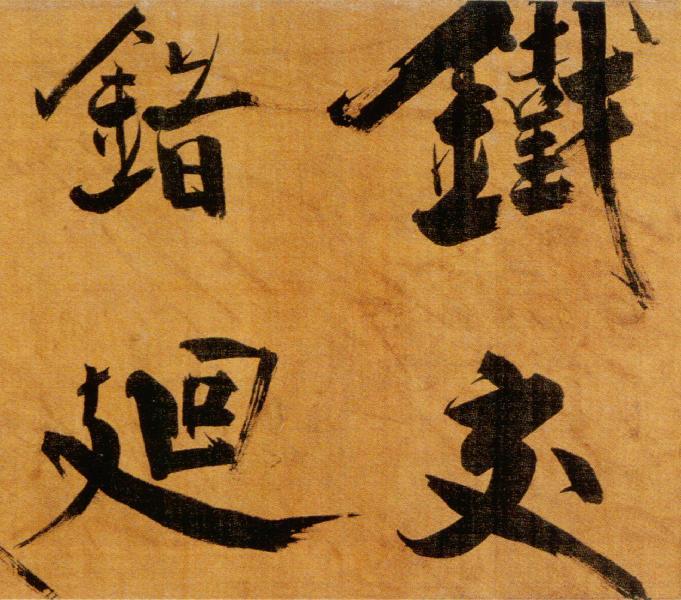 鐵交
錯迴